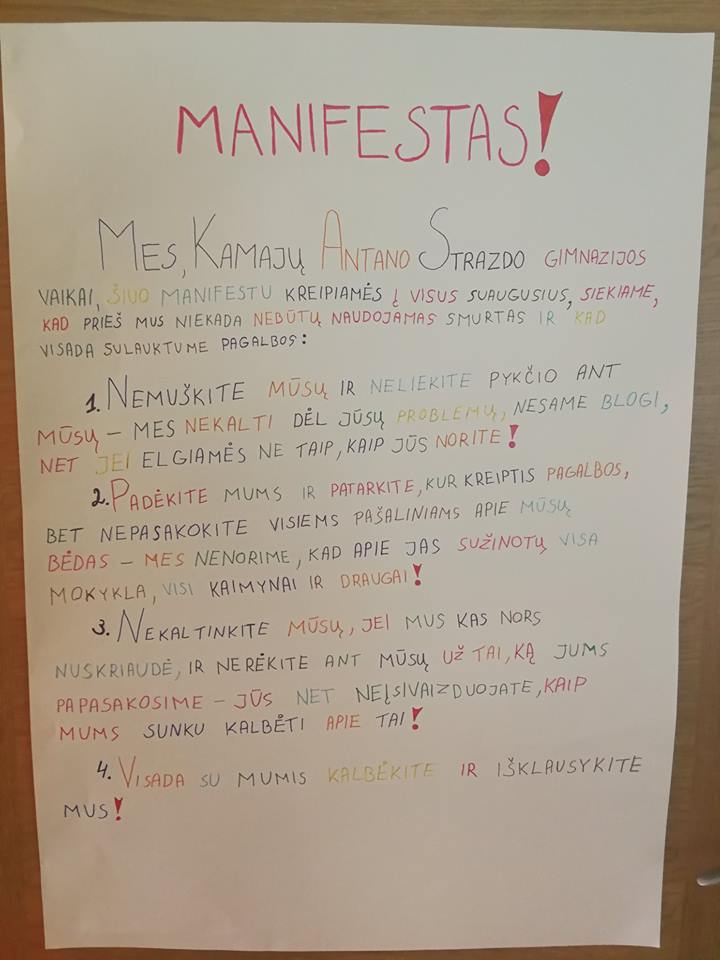 MANIFESTAS!
MES, KAMAJŲ ANTANO STRAZDO GIMNAZIJOS
VAIKAI, ŠIUO MANIFESTU KREIPIAMĖS Į VISUS SUAUGUSIUS, SIEKIAME,
KAD PRIEŠ MUS NIEKADA NEBŪTŲ NAUDOJAMAS SMURTAS IR KAD
VISADA SULAUKTUME PAGALBOS:
1. NEMUŠKITE MŪSŲ IR NELIEKITE PYKČIO ANT
MŪSŲ – MES NEKALTI DĖL JŪSŲ PROBLEMŲ, NESAME BLOGI,
NET JEI ELGIAMĖS NE TAIP, KAIP JŪS NORITE!
2. PADĖKITE MUMS IR PATARKITE, KUR KREIPTIS PAGALBOS,
BET NEPASAKOKITE VISIEMS PAŠALINIAMS APIE MŪSŲ
BĖDAS – MES NENORIME, KAD APIE JAS SUŽINOTŲ VISA
MOKYKLA, VISI KAIMYNAI IR DRAUGAI!
3. NEKALTINKITE MŪSŲ, JEI MUS KAS NORS
NUSKRIAUDĖ, IR NERĖKITE ANT MŪSŲ UŽ TAI, KĄ JUMS
PAPASAKOSIME – JŪS NET NEĮSIVAIZDUOJATE, KAIP
MUMS SUNKU KALBĖTI APIE TAI!
4. VISADA SU MUMIS KALBĖKITE IR IŠKLAUSYKITE
MUS!